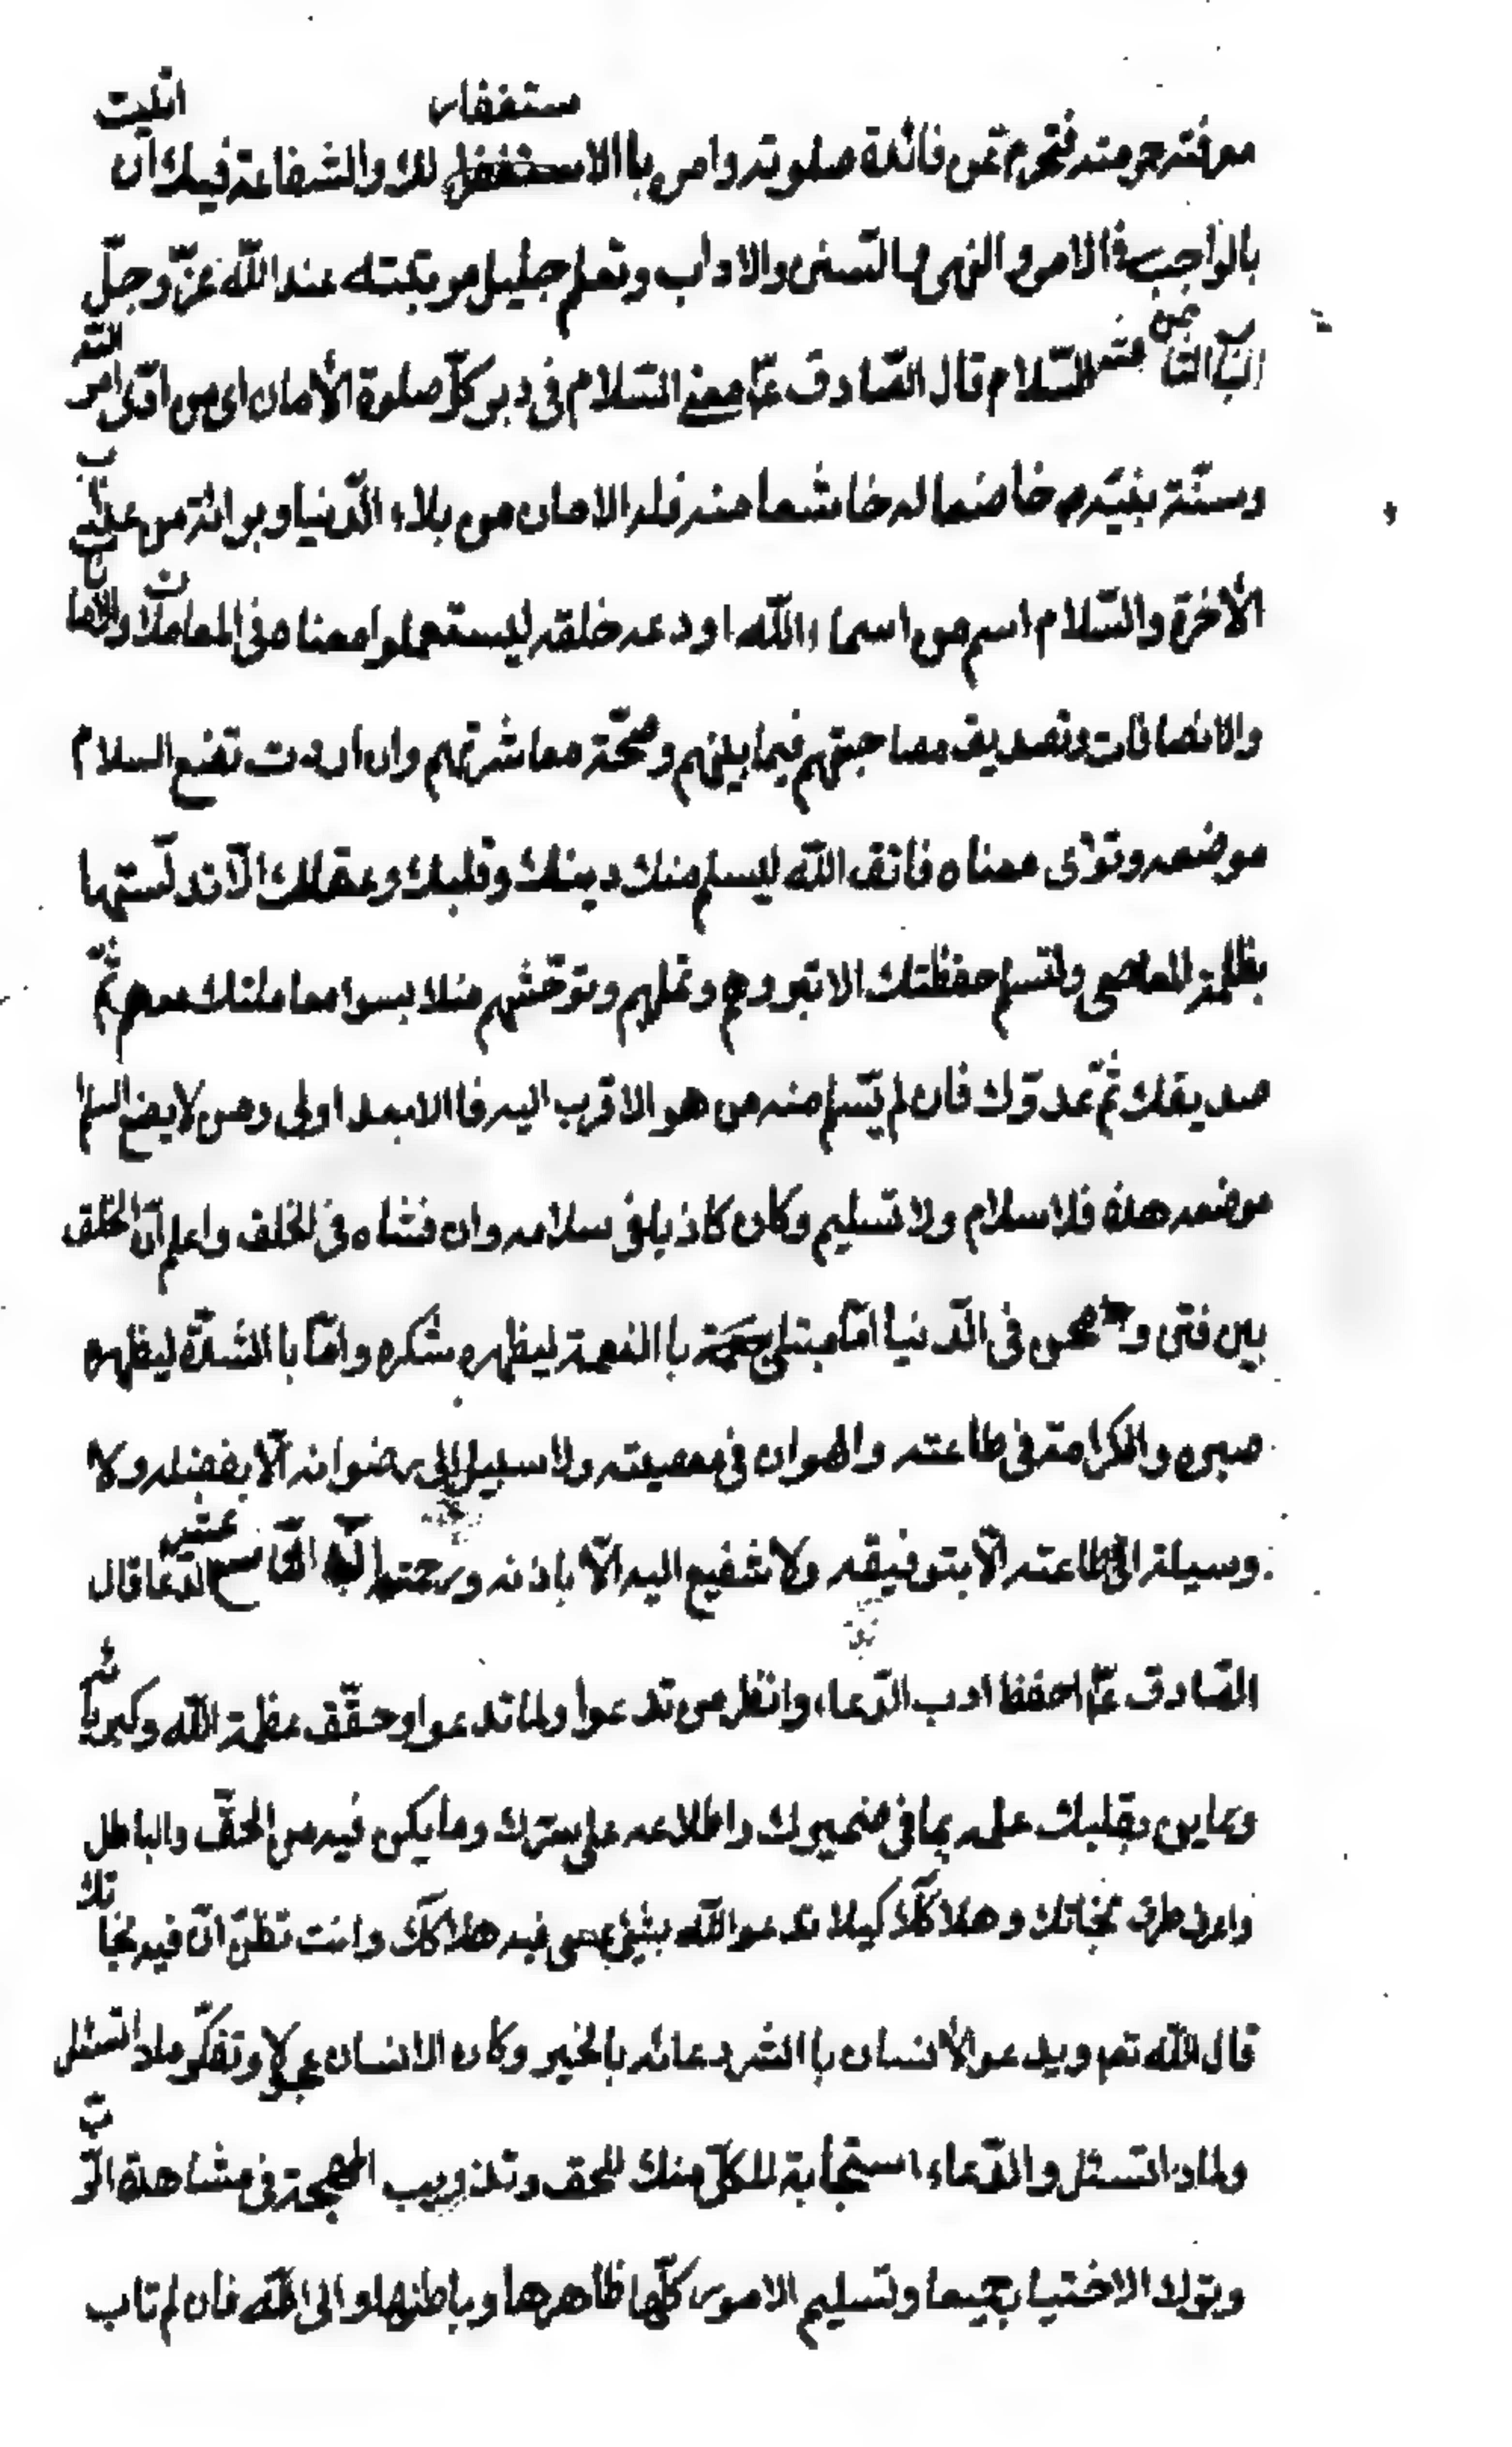 معرفته حرمته فتحرم عن فائدة صلوته وامره باالاستغفار لك والشفاعة فيك ان اتليت
بالواجب فى الامر والنهى والسنن والاداب وتعلم جليل مرتبته عند الله عزّ وجلّ
الباب الثامن عشر السّلام قال الصّادق عم معنى السّلام فى دبر كلّ صلوة الأمان اى من ادّى امر الله
وسنّة نبيّه خاضعا له خاشعا منه فله الامان من بلاء الدّنيا وبرائة من عذاب
الأخرة والسّلام اسم من اسماء الله اودعه خلقه ليستعملوا معناه فى المعاملات والامانات
والانصافات وتصديق مصاحبتهم فيما بينهم وصحّة معاشرتهم وان اردت تضع السلام
موضعه وتؤدى معناه فاتق الله ليسلم منك دينك وقلبك وعقلك الّا تدنّستها
بظلمة المعاصى ولتسلم حفظتك الا تبروهم وتملهم وتوحّشهم منك بسوء معاملتك معهم ثمّ
صديقك ثمّ عدوّك فان لم يسلم منه من هو الاقرب اليه فا الابعد اولى ومن لا يضع السلم
موضعه هذه فلا سلام ولا تسليم وكان كاذبا فى سلامه وان فشاه فى الخلق واعلم انّ الخلق
بين فتن و محن فى الدّنيا امّا مبتلى بالنعمة ليظهر شكره وامّا با الشدّة ليظهره
صبره والكرامة فى طاعته والهوان فى معصيته ولا سبيل الى رضوانه الّا بفضله ولا
وسيلة الى طاعته الّا بتوفيقه ولا شفيع اليه الّا باذنه ورحمته الباب التاسع عشر الدّعا قال
الصّادق عم احفظ ادب الدّعاء وانظر من تدعوا ولما تدعوا وحقّق عظمة الله وكبريائه
وعاين بقلبك علمه بما فى ضميرك واطلاعه على سرّك وما يكن فيه من الحقّ والباطل
واعرف طرق نجاتك وهلاكك كيلا تدعوا الله بشئ عسى فيه هلاكك وانت تظنّ انّ فيه نجاتك
قال الله تعم ويدعو الأنسان با الشر دعائه بالخير وكان الانسان عجولا وتفكّر ماذا تسئل
ولماذا تسئل والدّعاء استجابة للكلّ منك للحق وتذويب المهجة فى مشاهدة الرّب
وترك الاختيار جميعا وتسليم الامور كلّها ظاهرها وباطنها الى الله فان لم تاب